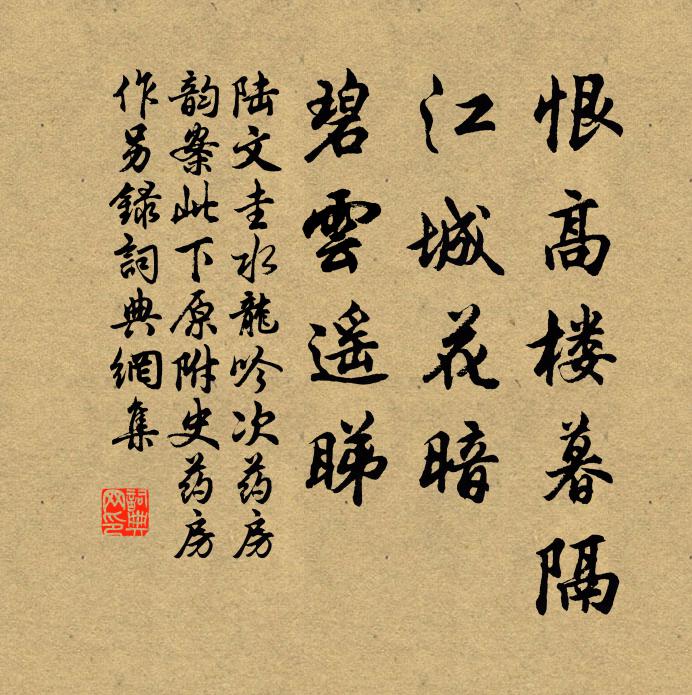 恨高楼暮隔
江城花暗
碧雲遥睇
陆文圭水龍吟次药房
韵案此下原附史药房
作另録詞典網集
詞典網印